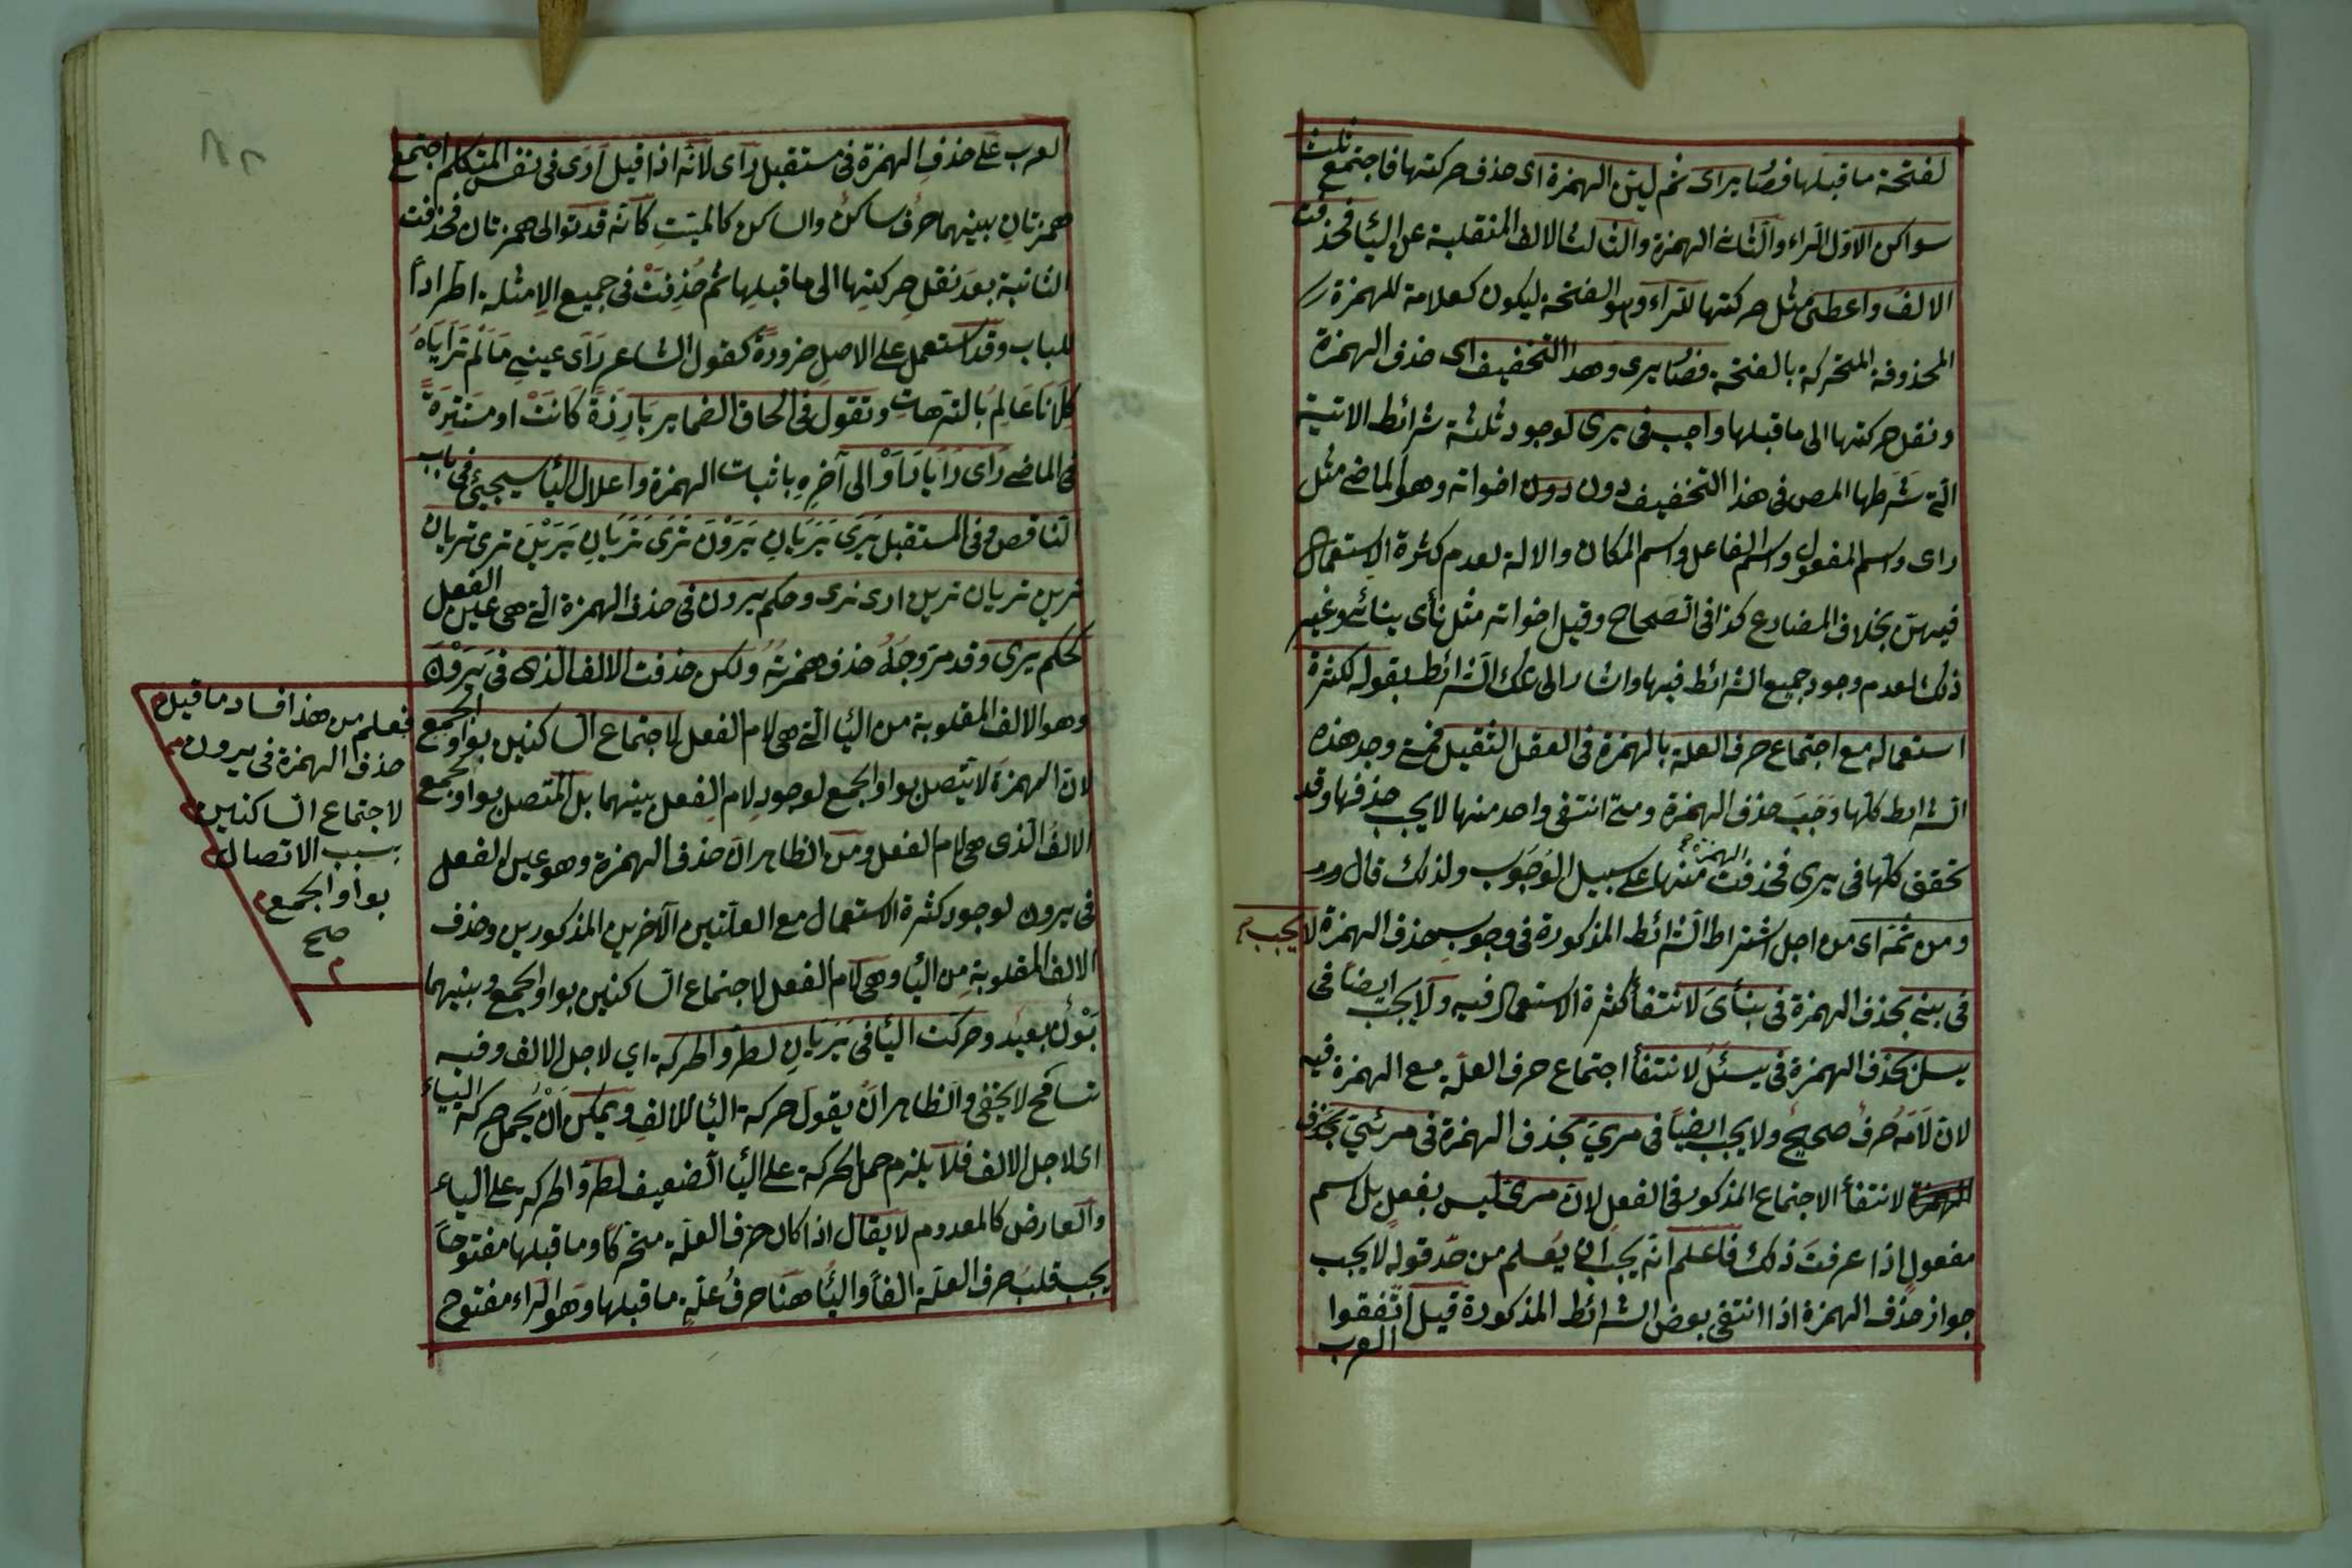 لفتحة ما قبلها فصار يراى ثم لين الهمزة اى حذف حركتها فاجتمع ثلث
سواكن الاول الراء والثانى الهمزة والثالث الالف المنقلبة عن اليا فحذفت
الالف واعطى مثل حركتها للراء وهو الفتحة ليكون كعلامة للهمزة
المحذوفة المتحركة بالفتحة فصار يرى وهذا التخفيف اى حذف الهمزة
ونقل حركتها الى ما قبلها واجب فى يرى لوجود ثلثة شرائط الاتية
التى شرطها المص فى هذا التخفيف دون دون اخواته وهو الماضى مثل
راى واسم المفعول واسم الفاعل واسم المكان والالة لعدم كثرة الاستعمال
فيهن بخلاف المضارع كذا فى الصحاح وقيل اخواته مثل نأى ينائ وغير
ذلك لعدم وجود جميع الشرائط فيها واشار الى تلك الشرائط بقوله لكثرة
استعماله مع اجتماع حرف العلة بالهمزة فى الفعل الثقيل فمتى وجد هذه
الشرائط كلها وَجَبَ حذف الهمزة ومتى انتفى واحد منها لا يجب حذفها وقد
تحقق كلها فى يرى فحذفت الهمزة منها على سبيل الوُجوب ولذلك قال
ومن ثمه اى من اجل اشتراط الشرائط المذكورة فى وجوب حذف الهمزة لا يجب
فى ينى بحذف الهمزة فى ينأىَ لانتفأ كثرة الاستعمال فيه ولا يجب ايضا فى
يسل بحذف الهمزة فى يسئلُ لانتفأ اجتماع حرف العلّة مع الهمزة فيه
لان لَامَهُ حُرفٌ صحيحٌ ولا يجب ايضًا فى مرىّ بحذف الهمزة فى مرئىّ بحذف
الهمزة لانتفأ الاجتماع المذكور فى الفعل لان مرى ليس بفعلٍ بل اسم
مفعولٍ اذا عرفتَ ذلك فاعلم انّه يجب ان يُعلم من حدّ قوله لا يجب
جواز حذف الهمزة اذا انتفى بعض الشرائط المذكورة قيل اتّفقوا
العرب
العرب على حذفِ الهمزة فى مستقبل رَأى لانّه اذا قيل اَرْأى فى نفس المتكلم اجتمع
همزتانِ بينهما حرُف ساكنٌ والساكن كالميّتِ كانّه قد توالى همزتان فحذفت
الثانية بعدَ نقل حركتِها الى ما قبلِها ثم حُذِفَتْ فى جميع الامثلة اطّراداً
للباب وقد استعمل على الاصلِ ضرورةً كقول الشاعر رَأى عينىِ مَا لَم تَرَاَياهُ
كِلَانَا عَالِمٌ بالترّهاتِ وتقول فى الحاق الضمايرِ بَارِزةً كَانَتْ او مستتِرةً
فى الماضى رَأى رَأيَا رَأوْا الى آخرِهِ باثبات الهمزة واعلال اليأ سيجيئ فى باب
الناقص وفى المستقبل يَرَى يَرَيَانِ يَرَوْنَ تَرَى تَرَيَانِ يَرَيْنَ ترى تريان
ترين تريان ترين ارى نرى وحكم يرون فى حذف الهمزة التى هى عين الفعل
كحكم يرى وقد مرّ وَجهُ حذفِ همزتِهُ ولكن حذفت الالف الذى فى يَرَوْنَ
وهو الالف المقلوبة من اليأ التى هى لام الفعل لاجتماع الساكنين بواو الجمع
لان الهمزةَ لا يتّصل بواو الجمع لوجودِ لام الفِعل بينهما بل المتّصل بواو الجمع
الالفُ الّذى هى لام الفعل ومن الظاهر ان حذف الهمزة وهو عين الفعل
فى يرون لوجود كثرة الاستعمال مع العلّتين الآخرين المذكورين وحذف
الالف المقلوبةِ من اليأ وهى لام الفعل لاجتماع الساكنين بواو الجمع وبينهما
بَوْنٌ بعيد وحركت اليأ فى يَرَيَانِ لطروّ الحركة اى لاجل الالف وفيه
تسامح لا يخفى والظاهر انْ يقول حركة اليأ للالفِ ويمكن اَنْ يُحمل حركة الياء
اى لاجل الالف فلا يلزم حمل الحركة على اليأ الضعيف لطروّ الحركة على الياء
والعارض كالمعدوم لا يقال اذا كان حرف العلّة متحركًا وما قبلها مفتوحاً
يجب قلبُ حرف العلّة الفاً واليأ ههنا حرفُ علّةٍ ما قبلها وهو الراء مفتوح
فعلم من هذا فساد ما قيل
حذف الهمزة فى يرون
لاجتماع الساكنين
بسبب الاتصال
بواو الجمع
صح